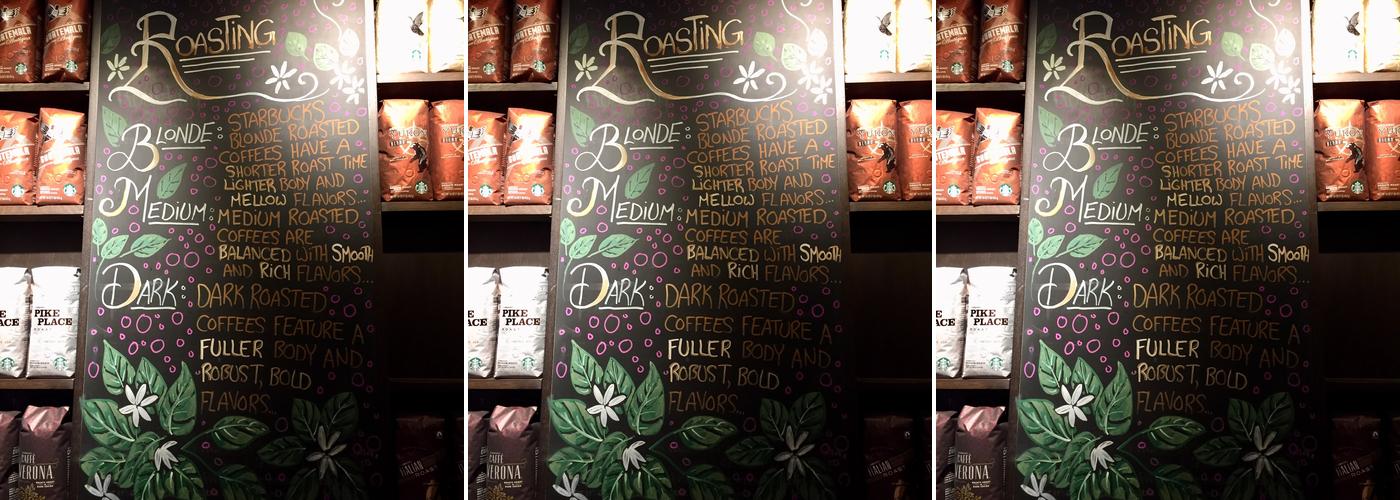 ROASTING
BLONDE: STARBUCKS
BLONDE ROASTED
COFFEES HAVE A
SHORTER ROAST TIME
LIGHTER BODY AND
MELLOW FLAVORS...
MEDIUM: MEDIUM ROASTED
COFFEES ARE
BALANCED WITH SMOOTH
AND RICH FLAVORS...
DARK: DARK ROASTED
COFFEES FEATURE A
FULLER BODY AND
ROBUST, BOLD
FLAVORS...
GUATEMALA
YUKON
PIKE
PLACE
CAFFÈ
VERONA
ROASTING
BLONDE: STARBUCKS
BLONDE ROASTED
COFFEES HAVE A
SHORTER ROAST TIME
LIGHTER BODY AND
MELLOW FLAVORS...
MEDIUM: MEDIUM ROASTED
COFFEES ARE
BALANCED WITH SMOOTH
AND RICH FLAVORS...
DARK: DARK ROASTED
COFFEES FEATURE A
FULLER BODY AND
ROBUST, BOLD
FLAVORS...
PIKE
PLACE
CAFFÈ
VERONA
ITALIAN
ROAST
ROASTING
BLONDE: STARBUCKS
BLONDE ROASTED
COFFEES HAVE A
SHORTER ROAST TIME
LIGHTER BODY AND
MELLOW FLAVORS...
MEDIUM: MEDIUM ROASTED
COFFEES ARE
BALANCED WITH SMOOTH
AND RICH FLAVORS...
DARK: DARK ROASTED
COFFEES FEATURE A
FULLER BODY AND
ROBUST, BOLD
FLAVORS...
PIKE
PLACE
CAFFÈ
VERONA
ITALIAN
ROAST